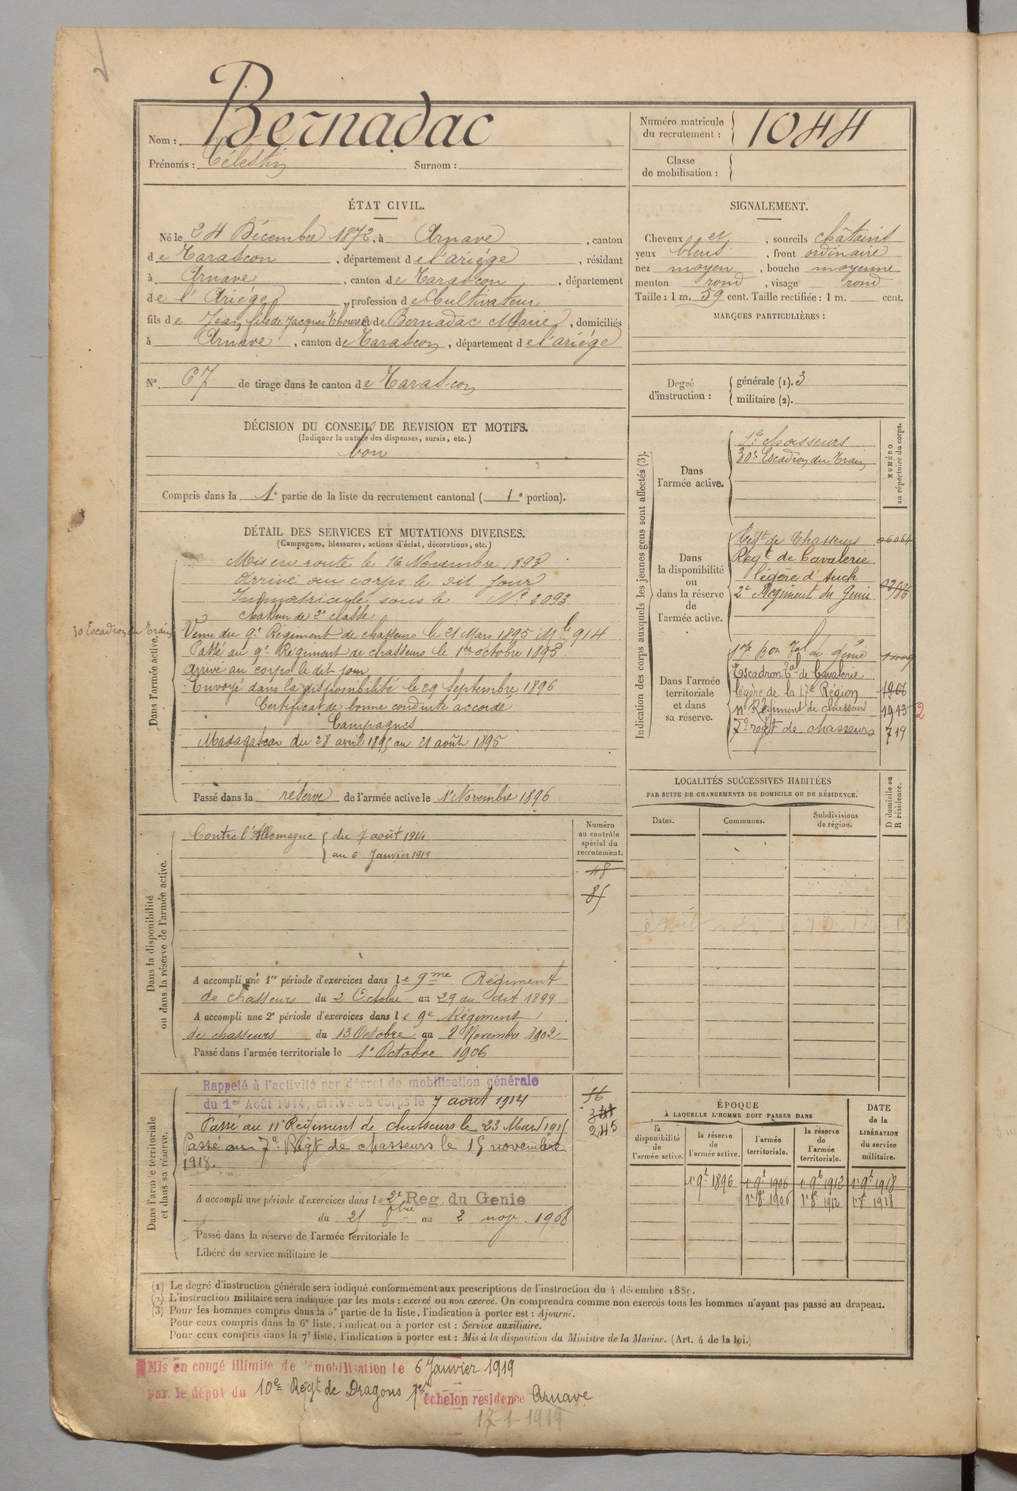 Nom : Bernadac
Prénoms : Célestin Surnom :
Numéro matricule du recrutement : 1044
Classe de mobilisation :
ÉTAT CIVIL.
Né le 24 Décembre 1872, à Arnave, canton
de Tarascon, département de l'ariège, résidant
à Arnave, canton de Tarascon, département
de l'Ariège, profession de Cultivateur
fils de Jean, fils de Jacques et de Bernadac Marie, domiciliés
à Arnave, canton de Tarascon, département de l'ariège
N° 67 de tirage dans le canton de Tarascon
SIGNALEMENT.
Cheveux et, sourcils châtains
yeux bleus, front ordinaire
nez moyen, bouche moyenne
menton rond, visage rond
Taille : 1 m. 59 cent. Taille rectifiée : 1 m. cent.
MARQUES PARTICULIÈRES :
Degré d'instruction : générale (1). 3
militaire (2).
DÉCISION DU CONSEIL DE REVISION ET MOTIFS.
(Indiquer la nature des dispenses, sursis, etc.)
bon
Compris dans la 1e partie de la liste du recrutement cantonal ( 1e portion).
DÉTAIL DES SERVICES ET MUTATIONS DIVERSES.
(Campagnes, blessures, actions d'éclat, décorations, etc.)
Dans l'armée active.
Mis en route le 16 Novembre 1893
Arrivé au corps le dit jour
Immatriculé sous le N° 3093
chasseur de 2e classe
30 Escadron du Train
Venu du 9e Régiment de chasseurs le 21 Mars 1895 Mle 914
Passé au 9e Régiment de chasseurs le 1er octobre 1895.
Arrivé au corps le dit jour
Envoyé dans la disponibilité le 29 Septembre 1896
Certificat de bonne conduite accordé
Campagnes
Madagascar du 28 avril 1895 au 21 août 1895
Passé dans la réserve de l'armée active le 1er Novembre 1896
Indication des corps auxquels les jeunes gens sont affectés (3).
NUMÉRO au répertoire du corps.
Dans l'armée active.
9e chasseurs
30e Escadron du Train
Dans la disponibilité ou dans la réserve de l'armée active.
Régt de Chasseurs
Régt de Cavalerie
légère d'Auch
2e Régiment du Génie
Dans l'armée territoriale et dans sa réserve.
17e bon Tal du génie
Escadron Tal de Cavalerie
légère de la 17e Région 1906
11e Régiment de chasseurs 1913
7e régt de chasseurs 719
LOCALITÉS SUCCESSIVES HABITÉES
PAR SUITE DE CHANGEMENTS DE DOMICILE OU DE RÉSIDENCE.
D domicile ou R résidence.
Dates. Communes. Subdivisions de région.
Dans la disponibilité ou dans la réserve de l'armée active.
Numéro au contrôle spécial du recrutement.
Contre l'Allemagne du 7 août 1914
au 6 Janvier 1919
48
85
A accompli une 1re période d'exercices dans le 9me Régiment
de chasseurs du 2 Octobre au 29 du dit 1899
A accompli une 2e période d'exercices dans le 9e Régiment
de chasseurs du 13 Octobre au 8 Novembre 1902
Passé dans l'armée territoriale le 1er Octobre 1906
Dans l'armée territoriale et dans sa réserve.
Rappelé à l'activité par décret de mobilisation générale
du 1er Août 1914, arrivé au corps le 7 aout 1914
Passé au 11e Régiment de chasseurs le 23 Mars 1915
Passé au 7e Régt de chasseurs le 15 novembre
1918.
A accompli une période d'exercices dans le 2e Reg. du Génie
du 21 8bre au 2 nov. 1908
Passé dans la réserve de l'armée territoriale le
Libéré du service militaire le
ÉPOQUE
À LAQUELLE L'HOMME DOIT PASSER DANS
DATE de la LIBÉRATION du service militaire.
la disponibilité de l'armée active.
la réserve de l'armée active.
l'armée territoriale.
la réserve de l'armée territoriale.
(1) Le degré d'instruction générale sera indiqué conformément aux prescriptions de l'instruction du 4 décembre 1889.
(2) L'instruction militaire sera indiquée par les mots : exercé ou non exercé. On comprendra comme non exercés tous les hommes n'ayant pas passé au drapeau.
(3) Pour les hommes compris dans la 5e partie de la liste, l'indication à porter est : Ajourné.
Pour ceux compris dans la 6e liste, l'indication à porter est : Service auxiliaire.
Pour ceux compris dans la 7e liste, l'indication à porter est : Mis à la disposition du Ministre de la Marine. (Art. 4 de la loi.)
Mis en congé illimité de démobilisation le 6 Janvier 1919
par le dépôt du 10e Régt de Dragons échelon résidence Arnave
17-1-1919